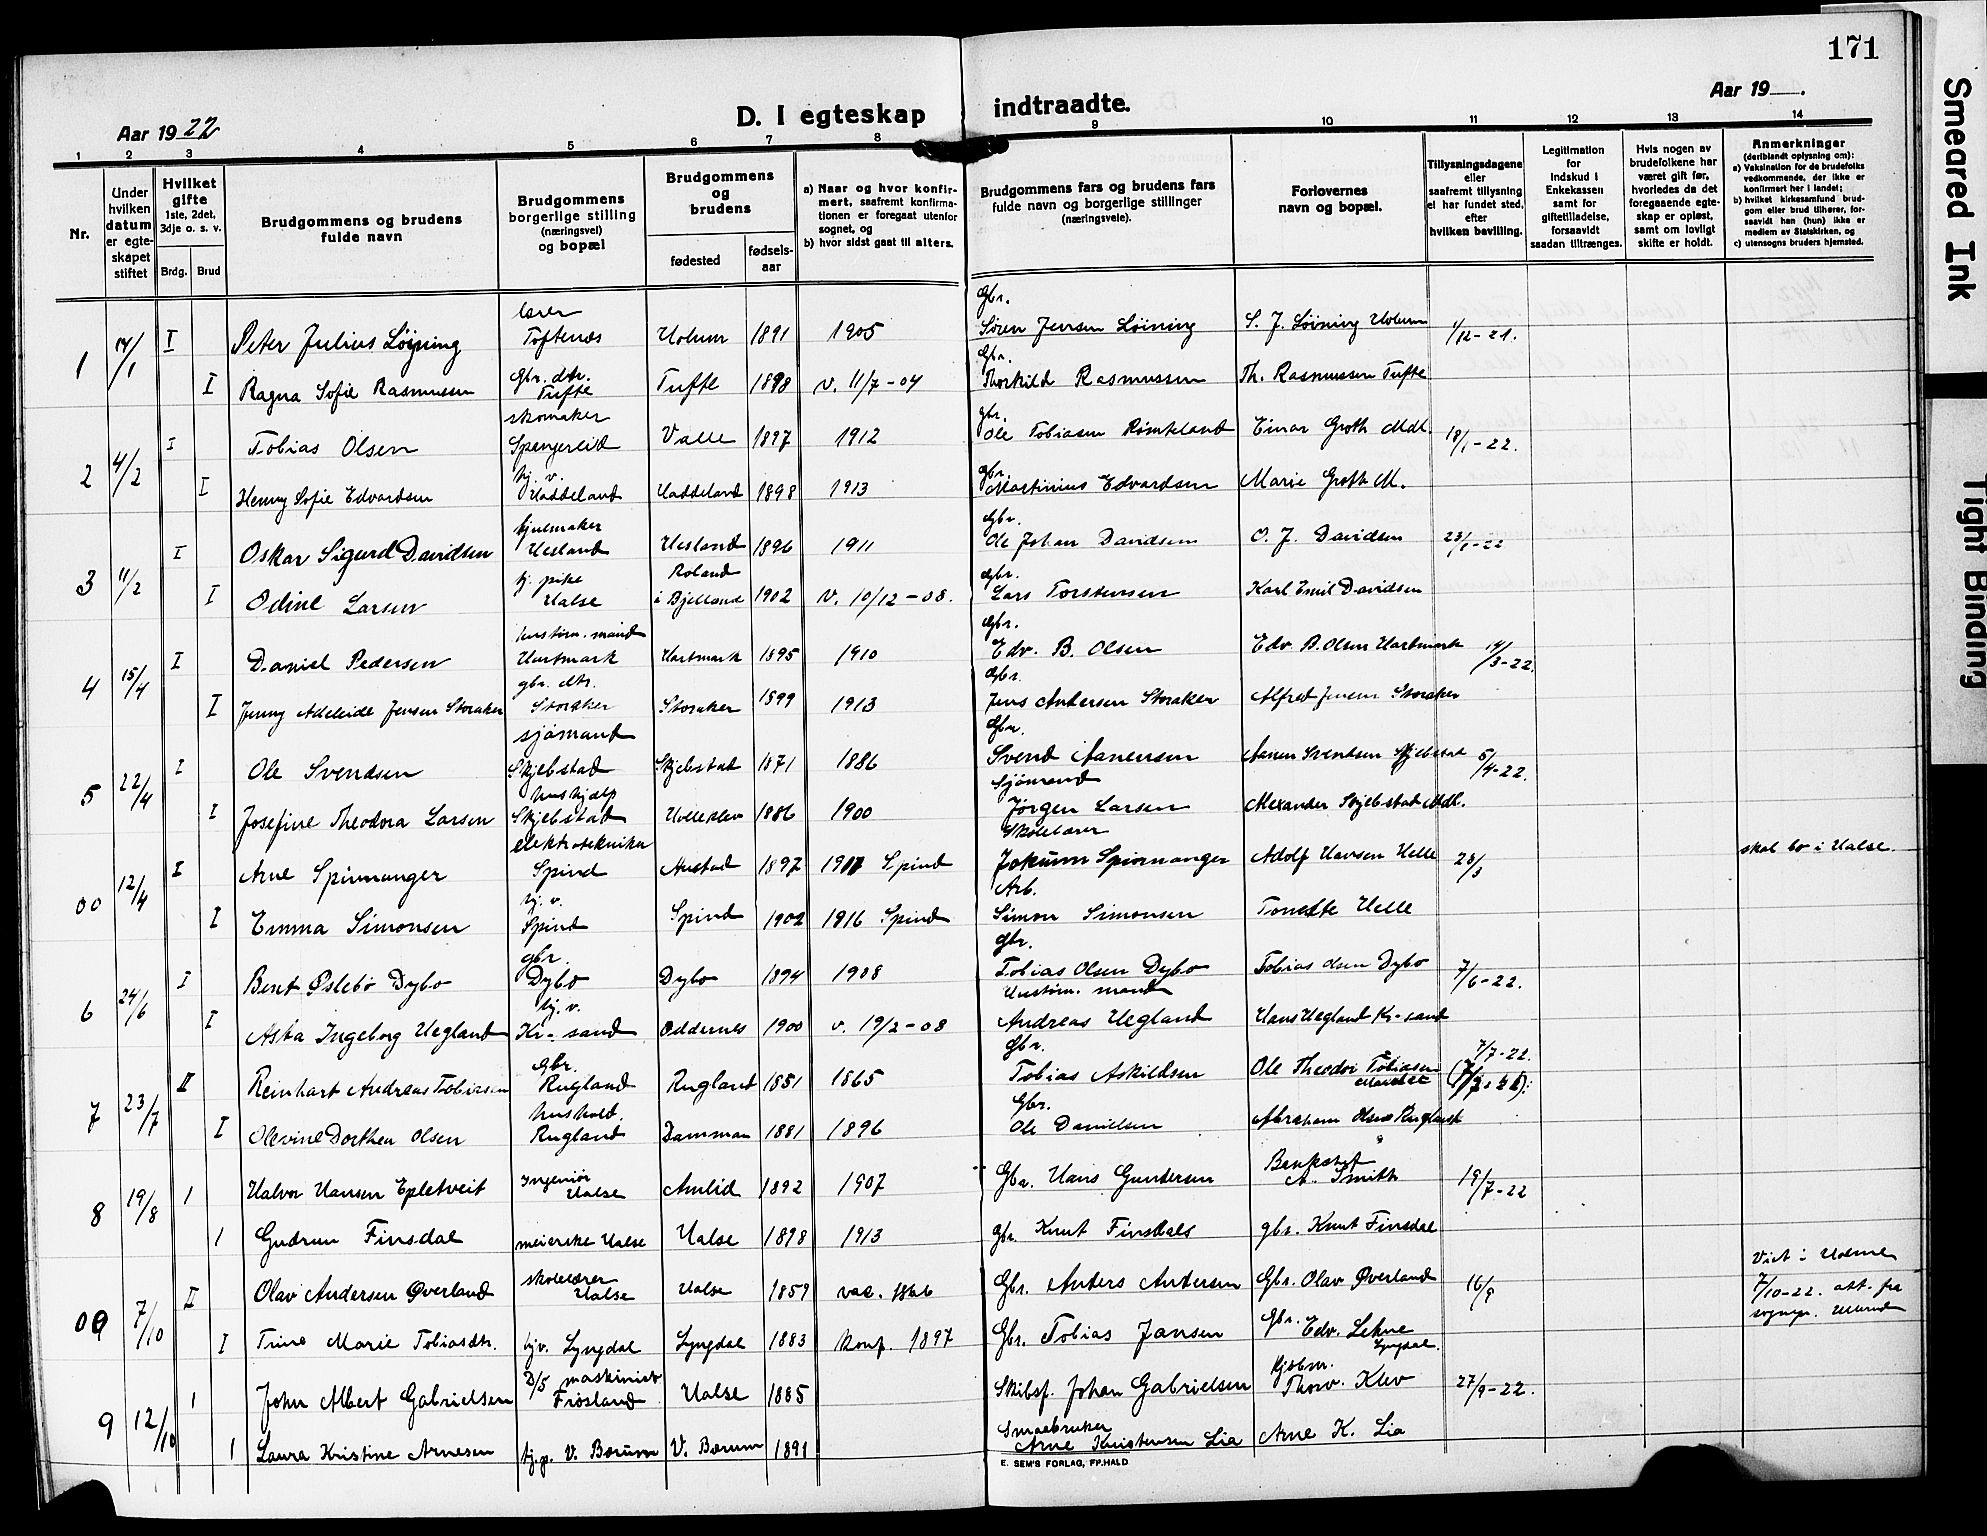 171
Aar 1922
D. I egteskap indtraadte.
Aar 19
1 2 3 4 5 6 7 8 9 10 11 12 13 14
Nr.
Under hvilken datum er egteskapet stiftet
Hvilket gifte 1ste, 2det, 3dje o. s. v.
Brdg. Brud
Brudgommens og brudens fulde navn
Brudgommens og brudens borgerlige stilling (næringsvei) og bopæl
Brudgommens og brudens
fødested fødselsaar
a) Naar og hvor konfirmert, saafremt konfirmationen er foregaat utenfor sognet, og
b) hvor sidst gaat til alters.
Brudgommens fars og brudens fars fulde navn og borgerlige stillinger (næringsveie).
Forlovernes navn og bopæl.
Tillysningsdagene eller saafremt tillysning ei har fundet sted, efter hvilken bevilling.
Legitimation for indskud i Enkekassen samt for giftetilladelse, forsaavidt saadan tiltrænges.
Hvis nogen av brudefolkene har været gift før, hvorledes da det foregaaende egteskap er opløst, samt om lovligt skifte er holdt.
Anmerkninger (deriblandt oplysning om):
a) Vaksination for de brudefolks vedkommende, der ikke er konfirmert her i landet;
b) hvilket kirkesamfund brudgom eller brud tilhører, forsaavidt han (hun) ikke er medlem av Statskirken, og
c) utensogns bruders hjemsted.
lærer Gbr.
1 14/1 I Peter Julius Løining Toftenes Holum 1891 1905 Søren Jensen Løining S. J. Løining Holum 1/12-21.
I Ragna Sofie Rasmussen Gbr. dtr. Tufte Tufte 1898 v. 11/7-04 Gbr. Thorkild Rasmussen Th. Rasmussen Tufte
2 4/2 I Tobias Olsen skomaker Spangereid Valle 1897 1912 gbr. Ole Tobiasen Einar Groth Mdl. 18/1-22.
I Henny Sofie Edvardsen tj. v. Haddeland Haddeland 1898 1913 gbr. Martinius Edvardsen Marie Groth M.
3 11/2 I Oskar Sigurd Davidsen hjulmaker Uesland Uesland 1896 1911 Gbr. Ole Johan Davidsen O. J. Davidsen 23/1-22
I Odine Larsen tj. pike Halse Roland i Bjelland 1902 v. 10/12-08. Gbr. Lars Torstensen Karl Emil Davidsen
4 15/4 I Daniel Pedersen hustøm. mand Hartmark Hartmark 1895 1910 Gbr. Edv. B. Olsen Edv B. Olsen Hartmark 14/3-22.
I Jenny Adeleide Jensen Storaker gbr. dtr. Storaker Storaker 1899 1913 Gbr. Jens Andersen Storaker Alfred Jensen Storaker
5 22/4 I Ole Svendsen sjømand Skjebstad Skjebstad 1871 1886 Gbr. Svend Aanensen Aanen Svendsen Skjebstad 5/4-22.
I Josefine Theodora Larsen hushjælp Skjebstad 1886 1900 Sjømand Jørgen Larsen Alexander Skjebstad Mdl.
00 12/4 I Arne Spinnanger elektrotekniker Spind Austad 1897 1911 Spind Skolelærer Jokum Spinnanger Adolf Hansen Helle 23/3 skal bo i Halse.
I Emma Simonsen tj. v. Spind Spind 1902 1916 Spind Arb. Simon Simonsen Tonette Helle
6 24/6 I Bent Øslebø Dybo gbr. Dybo Dybo 1894 1908 Gbr. Tobias Olsen Dybo Tobias Olsen Dybo 7/6-22.
I Asta Ingeborg Uegland tj. v. Kr.sand Oddernes 1900 v. 19/2-08 Hustøm. mand Andreas Uegland Hans Uegland Kr.sand
7 23/7 II Reinhart Andreas Tobiasen Gbr. Rugland Rugland 1851 1865 Gbr. Tobias Askildsen Ole Theodor Tobiasen 7/7-22.
I Olevine Dorthea Olsen hushold. Rugland Damman 1881 1896 Gbr. Ole Danielsen Abraham Olsen Rugland
8 19/8 1 Halvor Hansen Epletveit Ingeniør Halse Amlid 1892 1907 Gbr. Hans Gundersen Bankchef A. Smith 19/7-22
1 Gudrun Finsdal meierske Halse Halse 1898 1913 gbr. Knut Finsdals gbr. Knut Finsdal
00 7/10 II Olav Andersen Øverland skolelærer Halse Halse 1859 vac. 1866 Gbr. Anders Andersen Gbr. Olav Øverland 16/9 Viet i Holme 7/10-22. att. fra sognepr.
I Trine Marie Tobiasdtr. tjv. Lyngdal Lyngdal 1883 konf. 1897 Gbr. Tobias Jansen Gbr. Edv. Lehne Lyngdal.
9 12/10 1 John Albert Gabrielsen D/S maskinist Frøsland Halse 1885 Skibsf. Johan Gabrielsen Kjøbm. Thorv. Klev 27/9-22.
1 Laura Kristine Arnesen tj. p. V. Bærum V. Bærum 1891 Smaabruker Arne Kristensen Lia Arne K. Lia
E. SEM'S FORLAG, FR.HALD
Smeared Ink
Tight Binding